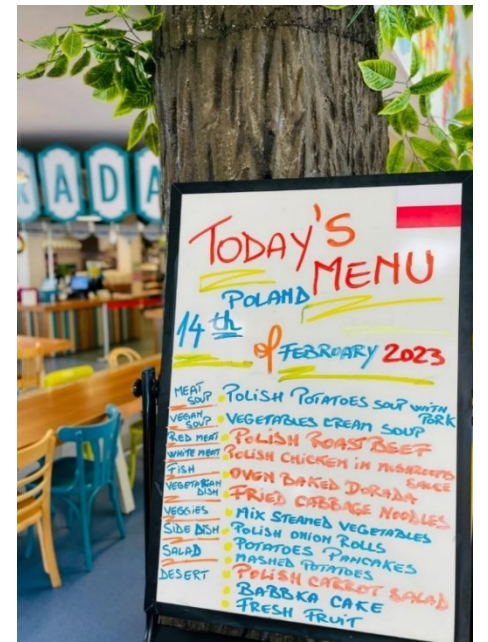 RADA
TODAY'S
MENU
POLAND
14th
of FEBRUARY 2023
MEAT SOUP • POLISH POTATOES SOUP WITH PORK
VEGAN SOUP • VEGETABLES CREAM SOUP
RED MEAT • POLISH ROAST BEEF
WHITE MEAT POLISH CHICKEN IN MUSHROOMS SAUCE
FISH • OVEN BAKED DORADA
VEGETARIAN DISH • FRIED CABBAGE NOODLES
VEGGIES • MIX STEAMED VEGETABLES
SIDE DISH • POLISH ONION ROLLS
• POTATOES PANCAKES
• MASHED POTATOES
SALAD • POLISH CARROT SALAD
DESERT • BABBKA CAKE
• FRESH FRUIT